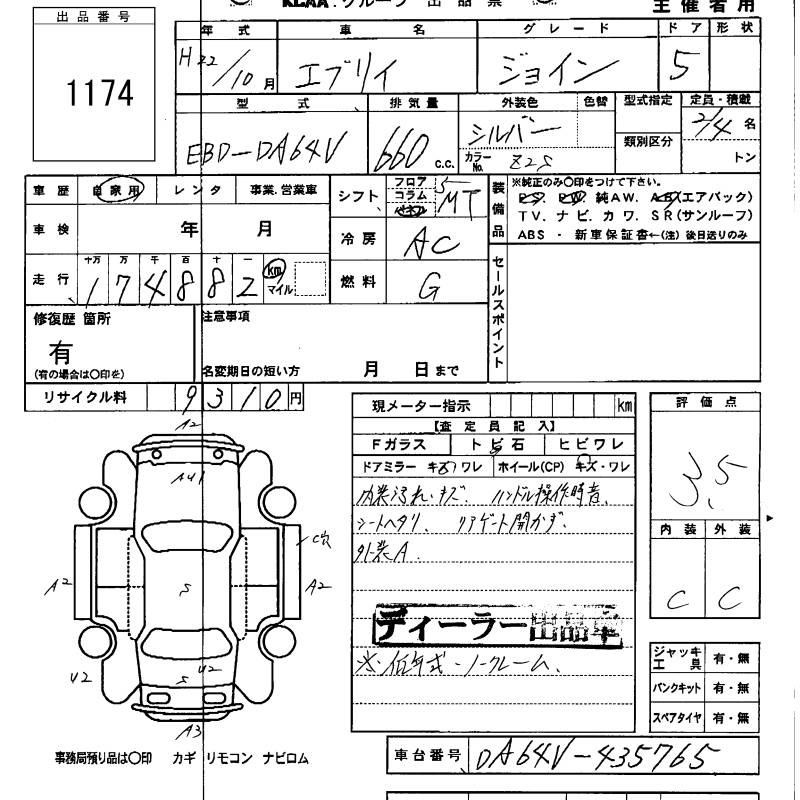 KCAA. グループ 出品票
主催者用
出品番号
1174
年式 車名 グレード ドア 形状
H22/10月 エブリイ ジョイン 5
型式 排気量 外装色 色替 型式指定 定員・積載
EBD-DA64V 660 C.C. シルバー 2/4名
カラーNo. Z2S 類別区分 トン
車歴 自家用 レンタ 事業.営業車
シフト フロア コラム 5 MT
装備品 ※純正のみ○印をつけて下さい。
PS. PW. 純AW. AB(エアバック)
TV. ナビ. カワ. SR(サンルーフ)
ABS ・ 新車保証書←(注)後日送りのみ
車検 年 月
冷房 AC
走行 十万 万 千 百 十 一
174882 km マイル
燃料 G
セールスポイント
修復歴 箇所
有
(有の場合は○印を)
注意事項
名変期日の短い方 月 日まで
リサイクル料 9310円
現メーター指示 km
【査定員記入】
Fガラス トビ石 ヒビワレ
ドアミラー キズワレ ホイール(CP) キズ・ワレ
内装汚れ・キズ. ハンドル操作時音.
シートヘタリ. リアゲート開かず.
外装A.
ディーラー出品車
※低年式・ノークレーム.
評価点
3.5
内装 外装
C C
A2
AU1
C穴
A2
S
A2
U2
U2
S
A3
ジャッキ工具 有・無
パンクキット 有・無
スペアタイヤ 有・無
事務局預り品は○印 カギ リモコン ナビロム
車台番号 DA64V-435765